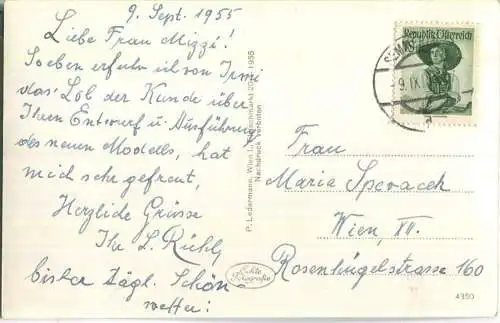 9. Sept. 1955
Liebe Frau Mizzi!
Soeben erfuhr ich von Irmi
das Lob der Kunde über
Ihren Entwurf u. Ausführung
des neuen Modells, hat
mich sehr gefreut,
Herzliche Grüsse
Ihr L. Rühl
bisher tägl. Schön
wetter!
P. Ledermann, Wien I., Fleischmarkt 20 1955
Nachdruck verboten
Echte
Fotografie
Republik Österreich
9. IX.
Frau
Maria Speracek
Wien, XII.
Rosenhügelstrasse 160
4350